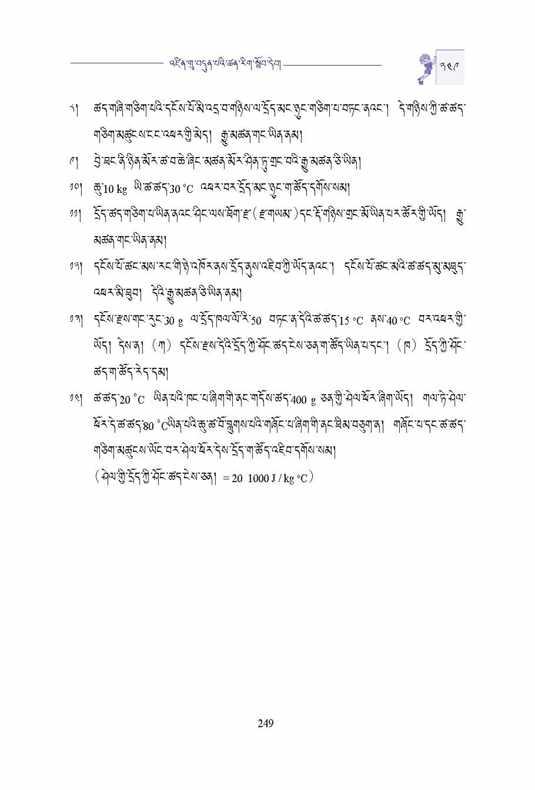 འཛིན་གྲྭ་བདུན་པའི་ཚན་རིག་སློབ་དེབ། ༢༤༩
༨། ཚད་གཞི་གཅིག་པའི་དངོས་པོ་མི་འདྲ་བ་གཉིས་ལ་དྲོད་མང་ཉུང་གཅིག་པ་བཏང་ནའང་། དེ་གཉིས་ཀྱི་ཚ་ཚད་
གཅིག་མཚུངས་ངང་འཕར་གྱི་མེད། རྒྱུ་མཚན་གང་ཡིན་ནམ།
༩། བྱེ་ཐང་ནི་ཉིན་མོར་ཚ་བ་ཆེ་ཞིང་མཚན་མོར་ཤིན་ཏུ་གྲང་བའི་རྒྱུ་མཚན་ཅི་ཡིན།
༡༠། ཆུ་10 kg ཡི་ཚ་ཚད་30 °C འཕར་བར་དྲོད་མང་ཉུང་ག་ཚོད་དགོས་སམ།
༡༡། དྲོད་ཚད་གཅིག་པ་ཡིན་ནའང་ཤིང་ལས་ཐོག་རྫ་(རྫ་གཡམ་)དང་རྡོ་གཉིས་གྲང་མོ་ཡིན་པར་ཚོར་གྱི་ཡོད། རྒྱུ་
མཚན་གང་ཡིན་ནམ།
༡༢། དངོས་པོ་ཚང་མས་རང་གི་ཉེ་འཁོར་ནས་དྲོད་ནུས་འཇིབ་ཀྱི་ཡོད་ནའང་། དངོས་པོ་ཚང་མའི་ཚ་ཚད་མུ་མཐུད་
འཕར་མི་ཐུབ། དེའི་རྒྱུ་མཚན་ཅི་ཡིན་ནམ།
༡༣། དངོས་རྫས་གང་རུང་30 g ལ་དྲོད་ཁལ་ལོ་རི་50 བཏང་ན་དེའི་ཚ་ཚད་15 °C ནས་40 °C བར་འཕར་གྱི་
ཡོད། དེས་ན། (ཀ) དངོས་རྫས་དེའི་དྲོད་ཀྱི་ཤོང་ཚད་ངེས་ཅན་ག་ཚོད་ཡིན་པ་དང་། (ཁ) དྲོད་ཀྱི་ཤོང་
ཚད་ག་ཚོད་རེད་དམ།
༡༤། ཚ་ཚད་20 °C ཡིན་པའི་ཁང་པ་ཞིག་གི་ནང་གདོས་ཚད་400 g ཅན་གྱི་ཤེལ་ཕོར་ཞིག་ཡོད། གལ་ཏེ་ཤེལ་
ཕོར་དེ་ཚ་ཚད་80 °Cཡིན་པའི་ཆུ་ཚ་པོ་བླུགས་པའི་གཞོང་པ་ཞིག་གི་ནང་ཐིམ་བཅུག་ན། གཞོང་པ་དང་ཚ་ཚད་
གཅིག་མཚུངས་ཡོང་བར་ཤེལ་ཕོར་དེས་དྲོད་ག་ཚོད་འཇིབ་དགོས་སམ།
(ཤེལ་གྱི་དྲོད་ཀྱི་ཤོང་ཚད་ངེས་ཅན། = 20 1000 J / kg °C)
249